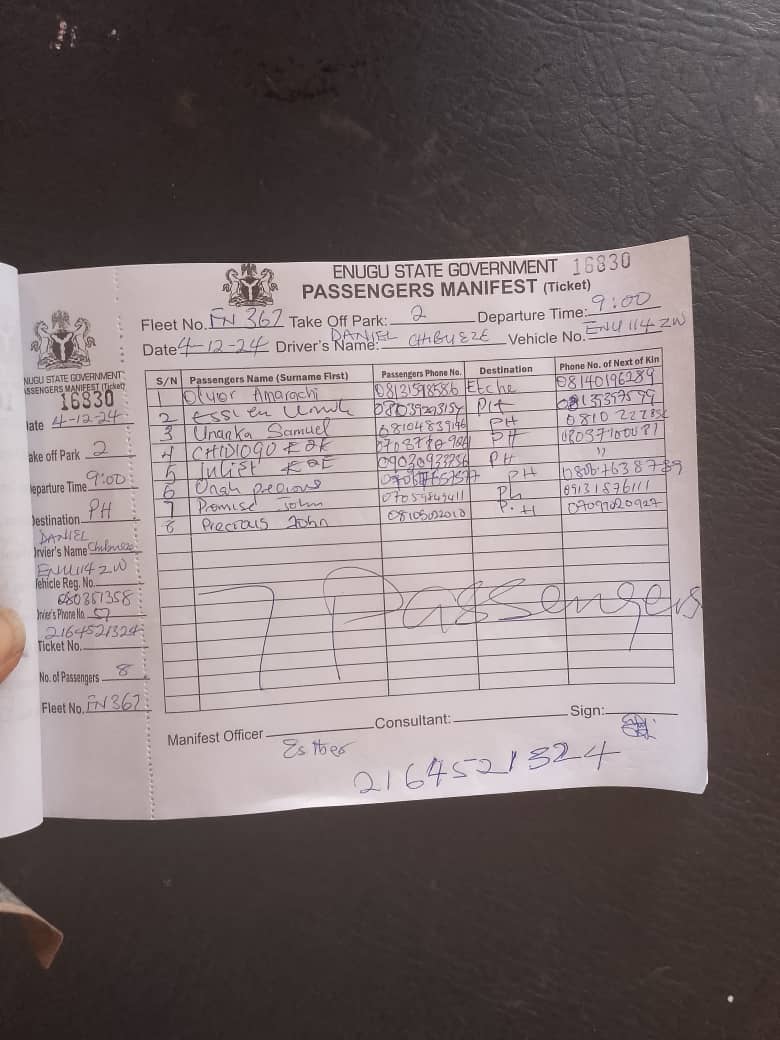 ENUGU STATE GOVERNMENT 16830
PASSENGERS MANIFEST (Ticket)
Fleet No. FN 362 Take Off Park: 2 Departure Time: 9:00
Date 4-12-24 Driver's Name: DANIEL CHIBUEZE Vehicle No. ENU 114 ZW
S/N Passengers Name (Surname First) Passengers Phone No. Destination Phone No. of Next of Kin
1 Amarachi 08131598586 Etche 08140196289
2 PH
3 Unanka Samuel 08104839196 PH
4 CHIDIOGO PH
5 09030933756 PH "
6 Onah precious PH
7 Promise John 07059849411 Ph 09131576111
8 Precious John 08105022010 P.H 07097020927
7 Passengers
Manifest Officer Esther Consultant: Sign:
2164521324
ENUGU STATE GOVERNMENT
PASSENGERS MANIFEST (Ticket)
16830
Date 4-12-24
Take off Park 2
Departure Time 9:00
Destination PH
DANIEL
Drvier's Name Chibueze
ENU 114 ZW
Vehicle Reg. No.
080351358
Driver's Phone No. 57
2164521324
Ticket No.
No. of Passengers 8
Fleet No. FN 362